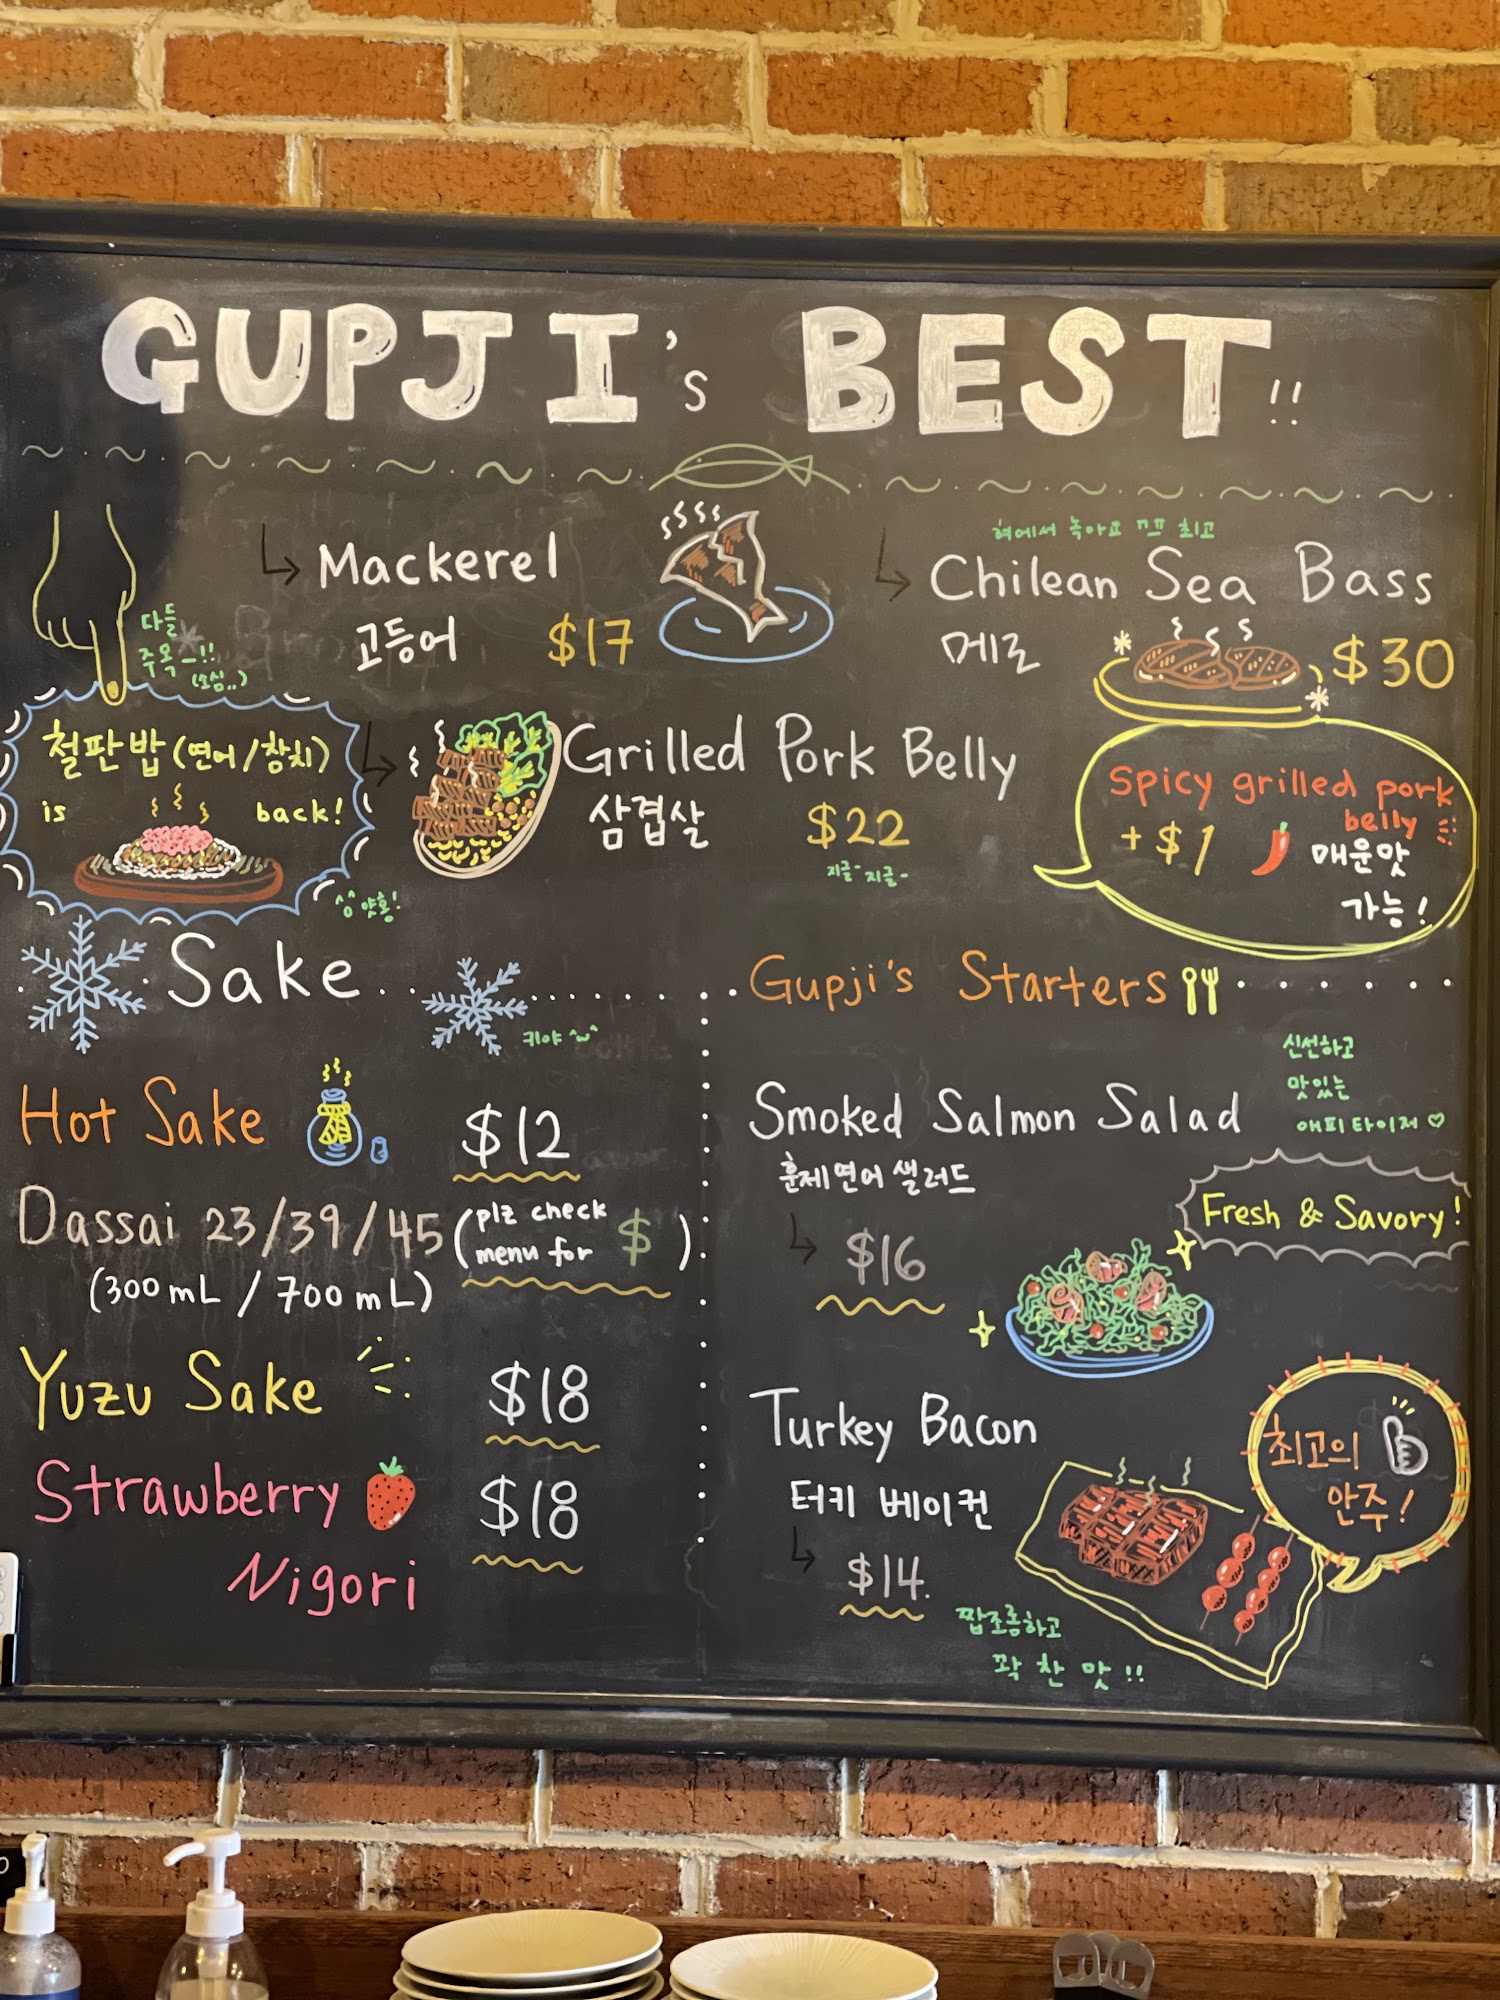 GUPJI's BEST!!
Mackerel
고등어 $17
혀에서 녹아요 ㅠㅠ 최고
Chilean Sea Bass
메로 $30
다들
주목-!!
(소심..)
철판밥 (연어/참치)
is back!
상얏홍!
Grilled Pork Belly
삼겹살 $22
지글-지글-
Spicy grilled pork
belly
+$1 매운맛
가능!
Sake
키야 ^~^
Hot Sake $12
Dassai 23/39/45 (plz check
menu for $)
(300mL / 700mL)
Yuzu Sake $18
Strawberry $18
Nigori
Gupji's Starters
신선하고
맛있는
애피타이저 ♡
Smoked Salmon Salad
훈제연어 샐러드
$16
Fresh & Savory!
Turkey Bacon
터키 베이컨
$14.
최고의
안주!
짭조롬하고
꽉 찬 맛!!